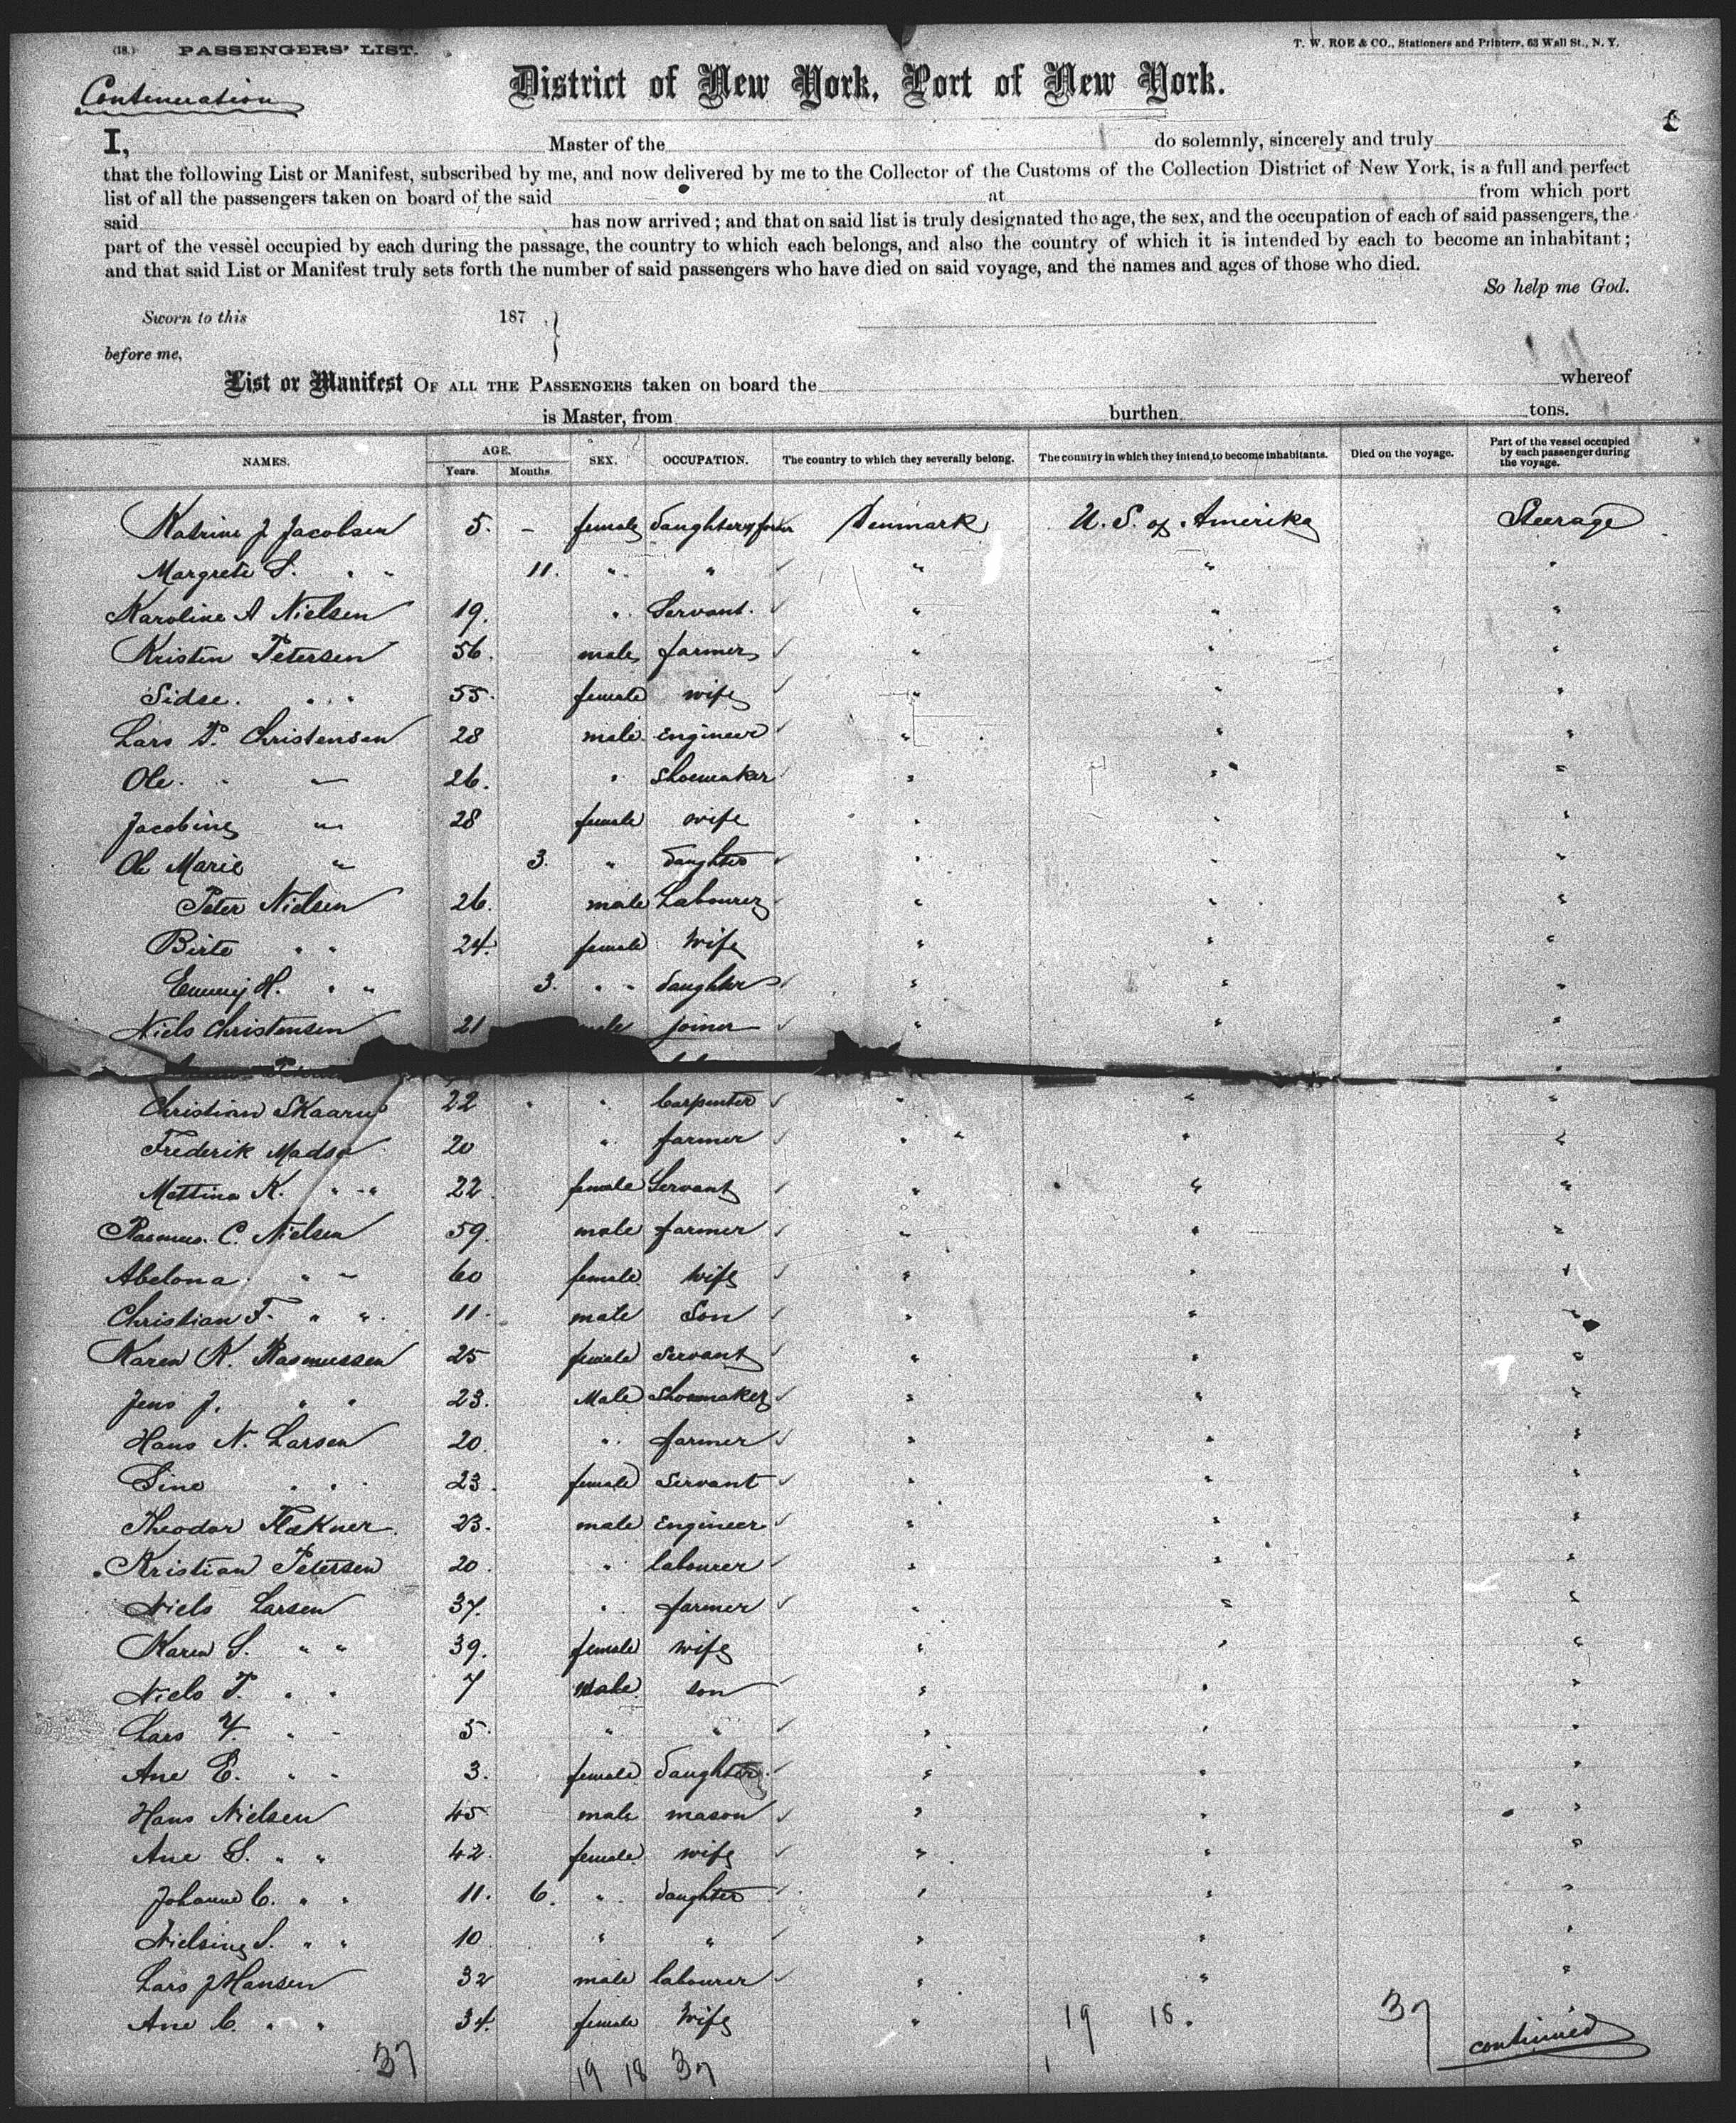 (18.) PASSENGERS' LIST. T. W. ROE & CO., Stationers and Printers, 63 Wall St., N. Y.
Continuation
District of New York, Port of New York.
I, Master of the do solemnly, sincerely and truly
that the following List or Manifest, subscribed by me, and now delivered by me to the Collector of the Customs of the Collection District of New York, is a full and perfect
list of all the passengers taken on board of the said at from which port
said has now arrived; and that on said list is truly designated the age, the sex, and the occupation of each of said passengers, the
part of the vessel occupied by each during the passage, the country to which each belongs, and also the country of which it is intended by each to become an inhabitant;
and that said List or Manifest truly sets forth the number of said passengers who have died on said voyage, and the names and ages of those who died.
So help me God.
Sworn to this 187
before me,
List or Manifest OF ALL THE PASSENGERS taken on board the whereof
is Master, from burthen tons.
NAMES. AGE. Years. Months. SEX. OCCUPATION. The country to which they severally belong. The country in which they intend to become inhabitants. Died on the voyage. Part of the vessel occupied by each passenger during the voyage.
Katrine J Jacobsen 5. - female daughter Denmark U. S. of Amerika Steerage
Margrete S. " " 11. " " " " "
Karoline A Nielsen 19. " Servant. " " "
Kristen Petersen 56. male farmer " " "
Sidse. " " 55. female wife " " "
Lars P. Christensen 28 male engineer " " "
Ole. " " 26. " Shoemaker " " "
Jacobine " 28 female wife " " "
Ole Marie " 3. " daughter " " "
Peter Nielsen 26. male Labourer " " "
Birte " " 24. female Wife " " "
Emmy H. " " 3. " " daughter " " "
Niels Christensen 21 male joiner " " "
Christian Skaarup 22 " " Carpenter " " "
Frederik Madse 20 " farmer " " "
Mettine K. " " 22. female Servant " " "
Rasmus. C. Nielsen 59. male farmer " " "
Abelona. " " 60 female wife " " "
Christian F. " " 11. male Son " " "
Karen K. Rasmussen 25 female servant " " "
Jens J. " " 23. Male Shoemaker " " "
Hans N. Larsen 20. " farmer " " "
Sine " " 23. female servant " " "
Theodor Flekner. 23. male engineer " " "
Kristian Petersen 20. " labourer " " "
Niels Larsen 37. " farmer " " "
Karen S. " " 39. female wife " " "
Niels P. " " 7 Male son " " "
Lars " " 5. " " " " "
Ane E. " " 3. female daughter " " "
Hans Nielsen 45 male mason " " "
Ane S. " " 42. female wife " " "
Johanne C. " " 11. 6. " daughter " " "
Nielsine S. " " 10 " " " " "
Lars J Hansen 32 male labourer " " "
Ane C. " " 34. female Wife " 19 18. 37 "
continued
37 19 18 37